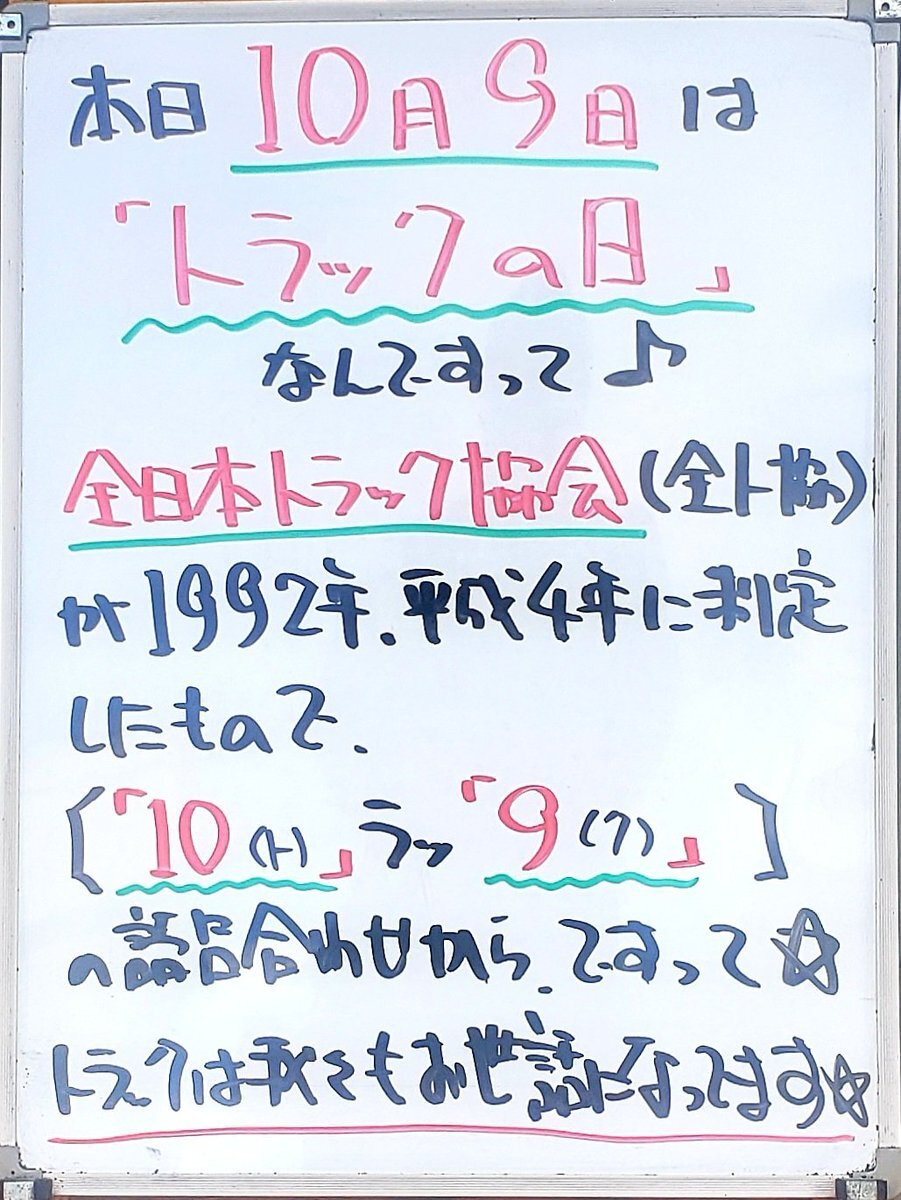 本日10月9日は
「トラックの日」
なんですって♪
全日本トラック協会(全ト協)
が1992年、平成4年に制定
したもので、
[「10(ト)」ラッ「9(ク)」]
の語呂合わせから、ですって☆
トラックは私くもお世話になってます☆